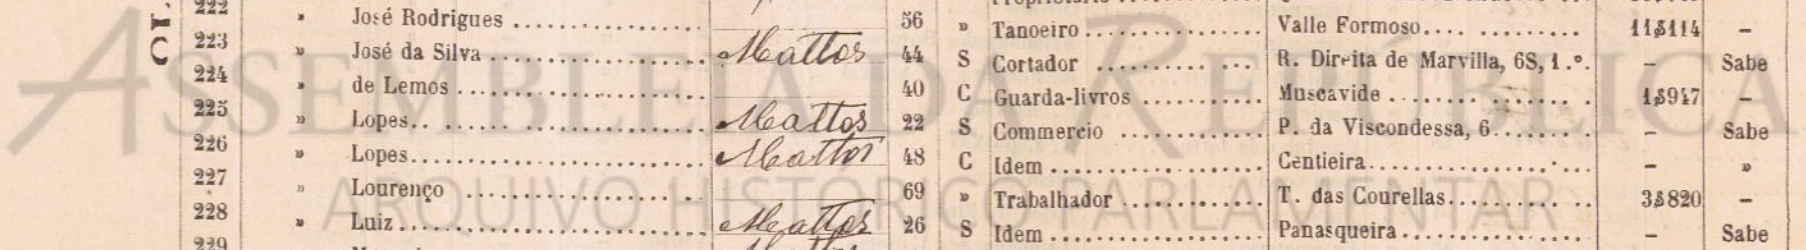 222 » José Rodrigues 56 » Tanoeiro Valle Formoso 11$114 –
223 » José da Silva Mattos 44 S Cortador R. Direita de Marvilla, 68, 1.º – Sabe
224 » de Lemos 40 C Guarda-livros Muscavide 1$947 –
225 » Lopes Mattos 22 S Commercio P. da Viscondessa, 6 – Sabe
226 » Lopes Mattos 48 C Idem Centieira – »
227 » Lourenço 69 » Trabalhador T. das Courellas 3$820 –
228 » Luiz Mattos 26 S Idem Panasqueira – Sabe
229
ASSEMBLEIA DA REPÚBLICA
ARQUIVO HISTÓRICO PARLAMENTAR